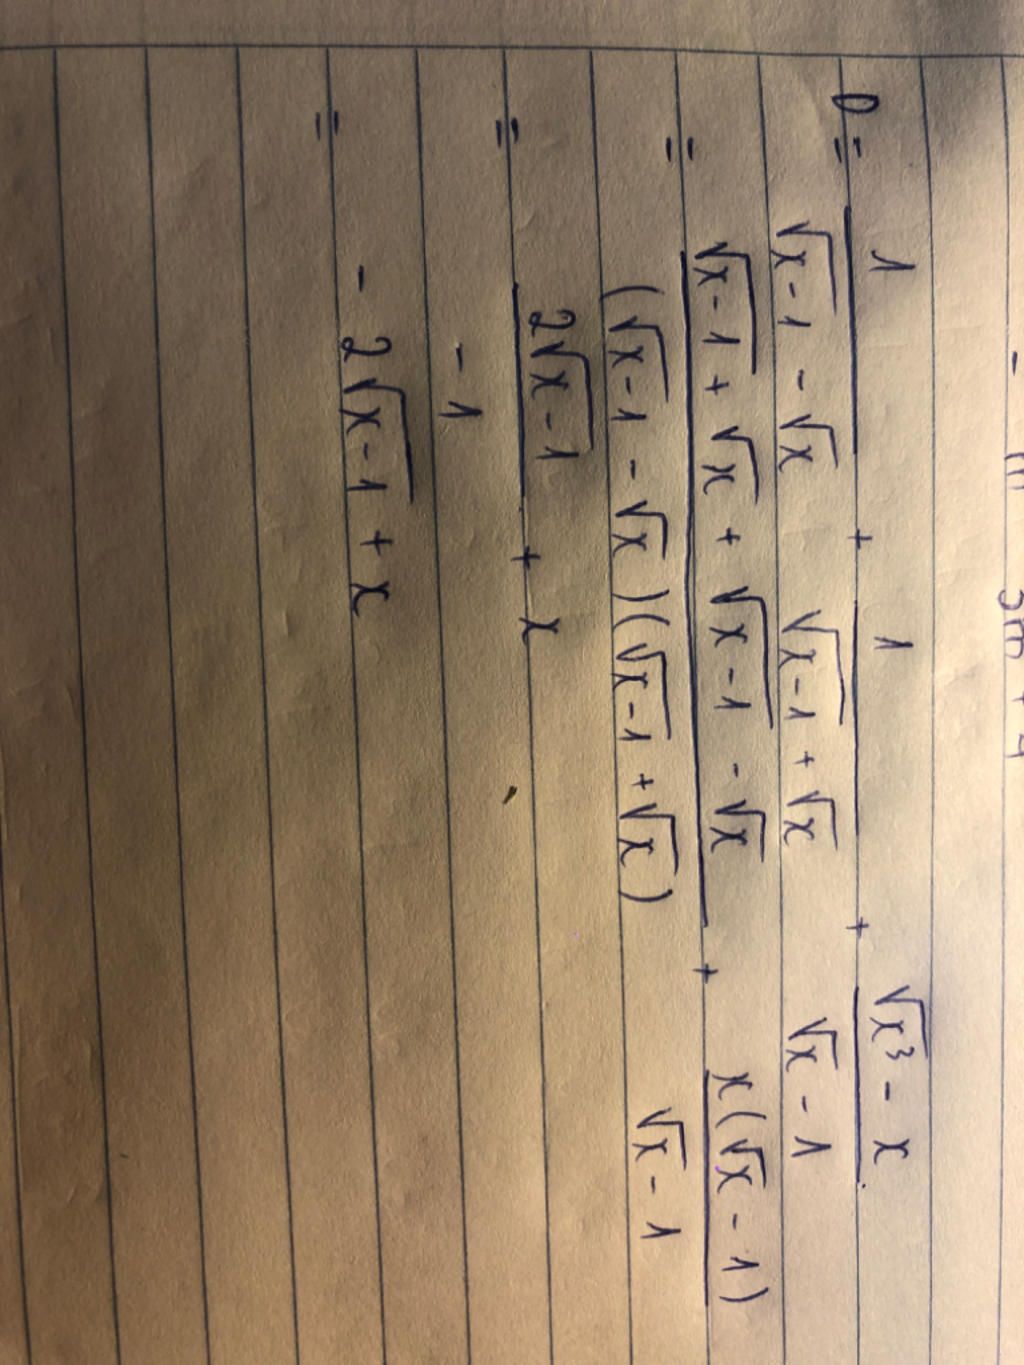 D = 1/(√(x-1) - √x) + 1/(√(x-1) + √x) + (√x³ - x)/(√x - 1)
= (√(x-1) + √x + √(x-1) - √x)/((√(x-1) - √x)(√(x-1) + √x)) + x(√x - 1)/(√x - 1)
= 2√(x-1)/-1 + x
= - 2√(x-1) + x